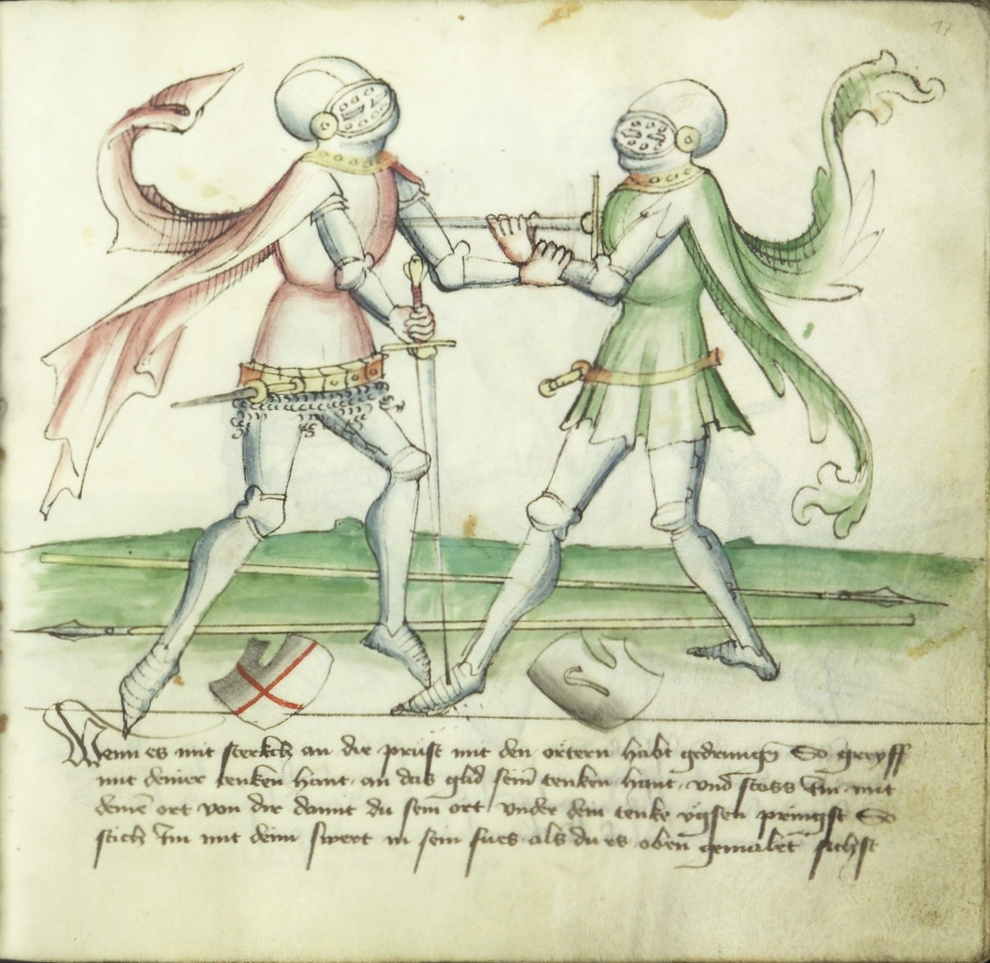 17
Wenn es mit sterkch an die prust mit den örtern habt gedrungen So greyff
mit deiner tenken hant an das glid seiner tenken hant und stoss Im mit
deinem ort von dir damit du sein ort under dein tenke vgsen pringst So
stich Im mit deim swert in sein fues als du es oben gemalet sichst